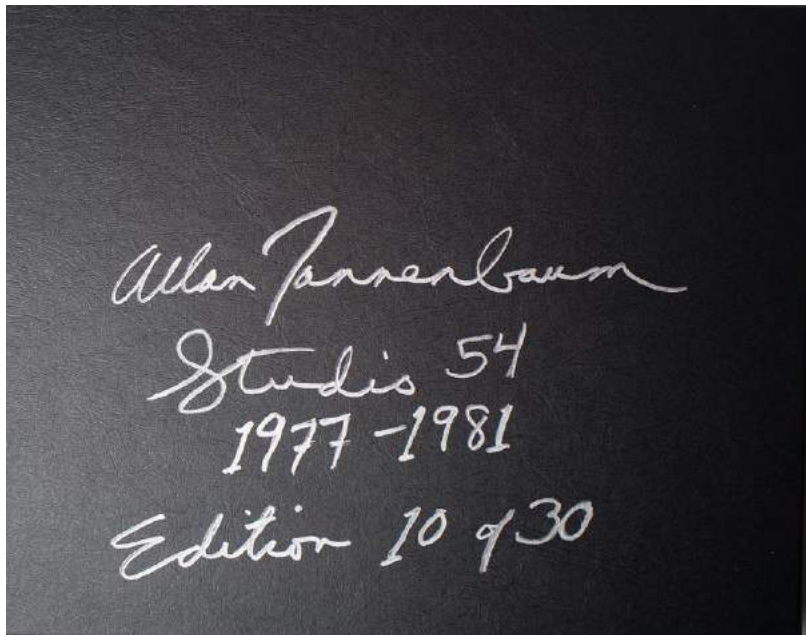 Allan Tannenbaum
Studio 54
1977-1981
Edition 10 of 30